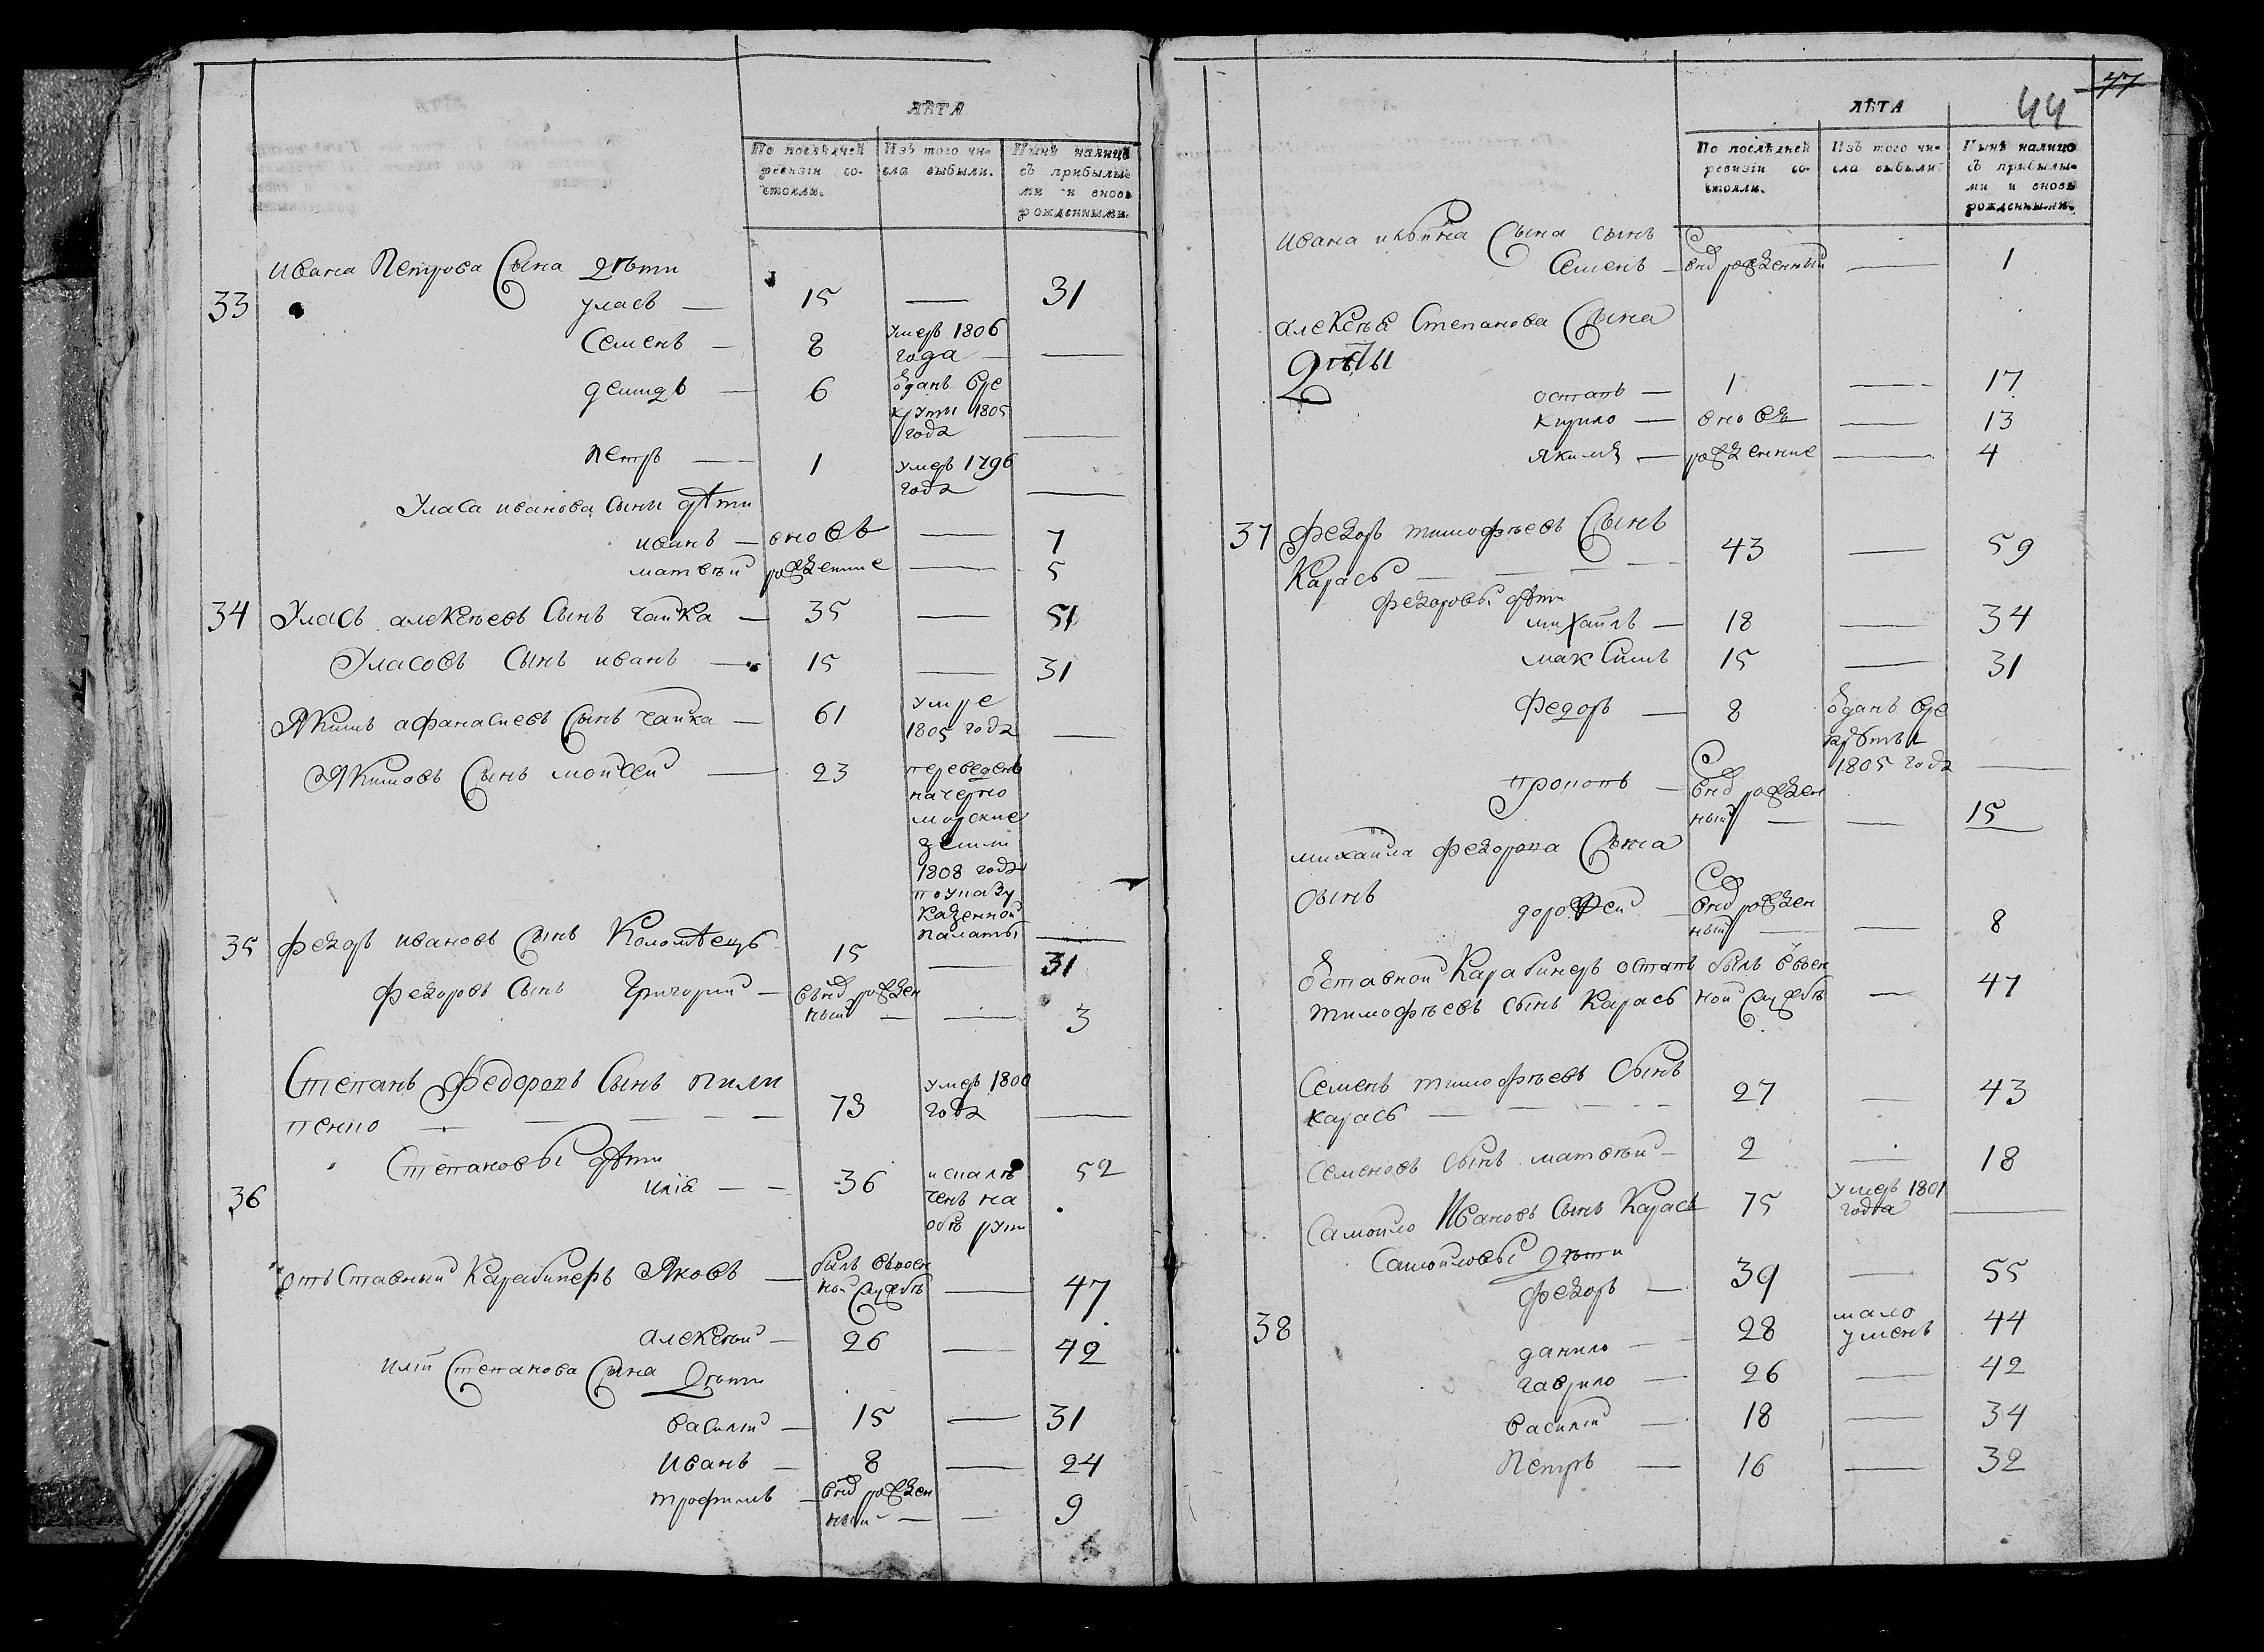 ЛѢТА
По послѣдней ревизіи со-стояли. Изъ того чи-сла выбыли. Нынѣ налицо съ прибылы-ми и вновь рожденными.
Ивана Петрова Сына дѣти
33 уласъ — 15 — 31
Семенъ — 8 умеръ 1806 года —
демидъ — 6 ѿданъ вре круты 1805 года —
петръ — 1 умеръ 1796 года —
Уласа иванова сына дѣти
иванъ — вновь — 7
матвѣй рожденные — 5
34 Уласъ алексѣевъ Сынъ чайка — 35 — 51
Уласовъ Сынъ иванъ — 15 — 31
Якимъ афанасиевъ Сынъ чайка — 61 умре 1805 года —
Якимовъ Сынъ мойсей — 23 переведенъ
на черно
морские
земли
1808 года
по указу
казенной
палаты —
35 федоръ ивановъ Сынъ Коломѣецъ 15 — 31
федоровъ Сынъ Григорий — вновь рожден
ный — — 3
Степанъ Федоровъ Сынъ пили
пенко — 73 умеръ 1800 года —
Степановы дѣти
36 илія — 36 искалѣ
ченъ на
обѣ руки 52
отъставный Карабинеръ Яковъ — былъ ввоен
ной службѣ — 47
алексѣй — 26 — 42
илии Степанова Сына дѣти
василий — 15 — 31
иванъ — 8 — 24
трофимъ — вновь рожден
ный — — 9
47
44
ЛѢТА
По послѣдней ревизіи со-стояли. Изъ того чи-сла выбыли. Нынѣ налицо съ прибылы-ми и вновь рожденными.
Ивана Сына сынъ
Семенъ — вновь рожденный — 1
алексѣя Степанова Сына
дѣты
остапъ — 1 — 17
кирило — вновь — 13
якимъ — рожденние — 4
37 федоръ тимофѣевъ Сынъ
Карась — 43 — 59
федоровы дѣти
михайлъ — 18 — 34
максимъ 15 — 31
Федоръ — 8 ѿданъ вре
круты
1805 года —
прокопъ — вновь рожден
ный — — 15
михаила федорова Сына
сынъ
дорофей — вновь рожден
ный — — 8
ѿставной Карабинеръ остапъ былъ ввоен
тимофѣевъ сынъ Карась ной службѣ — 47
Семенъ тимофѣевъ Сынъ
карась — 27 — 43
Семеновъ сынъ матвѣй — 2 — 18
Самойло Ивановъ Сынъ Карась 75 умеръ 1801 года —
Самойловы дѣти
федоръ — 39 — 55
38 данило — 28 мало
уменъ 44
гаврило — 26 — 42
василий — 18 — 34
Петръ — 16 — 32